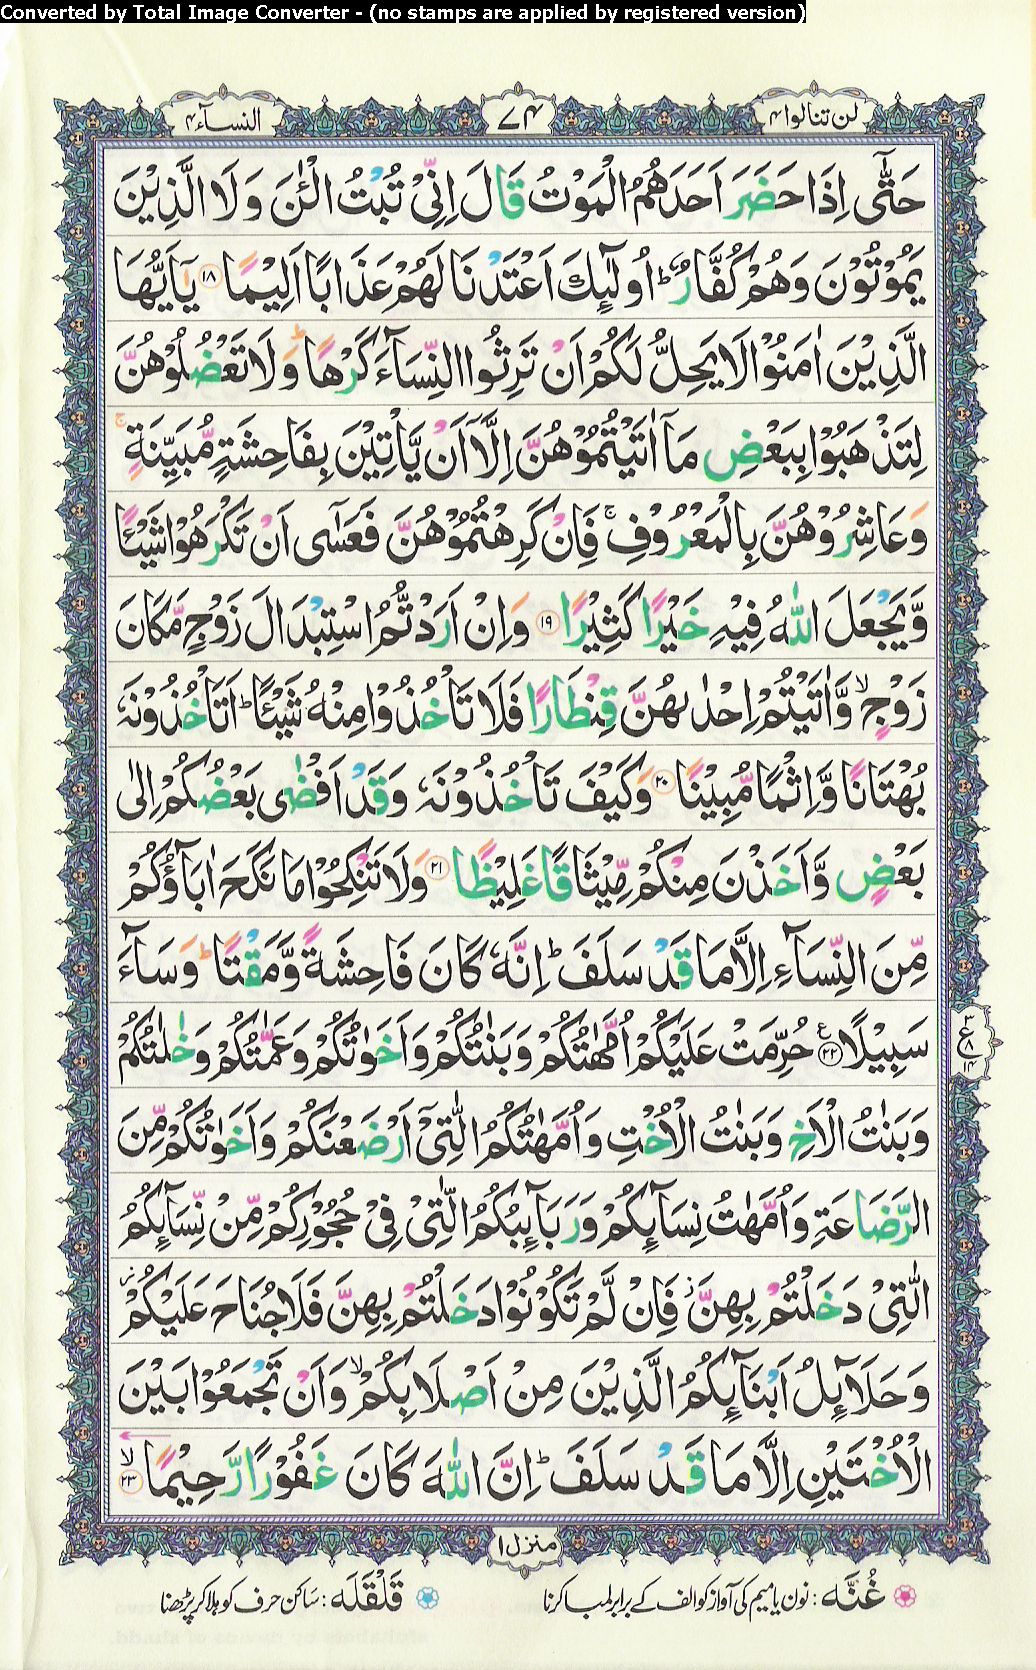 Converted by Total Image Converter - (no stamps are applied by registered version)
لن تنالوا ۴
۷۴
النسآء ۴
حَتّٰۤى اِذَا حَضَرَ اَحَدَهُمُ الْمَوْتُ قَالَ اِنِّیْ تُبْتُ الْـٰٔنَ وَ لَا الَّذِیْنَ
یَمُوْتُوْنَ وَ هُمْ كُفَّارٌ ؕ اُولٰٓىِٕكَ اَعْتَدْنَا لَهُمْ عَذَابًا اَلِیْمًا ۱۸ یٰۤاَیُّهَا
الَّذِیْنَ اٰمَنُوْا لَا یَحِلُّ لَكُمْ اَنْ تَرِثُوا النِّسَآءَ كَرْهًا ؕ وَ لَا تَعْضُلُوْهُنَّ
لِتَذْهَبُوْا بِبَعْضِ مَاۤ اٰتَیْتُمُوْهُنَّ اِلَّاۤ اَنْ یَّاْتِیْنَ بِفَاحِشَةٍ مُّبَیِّنَةٍ ۚ
وَ عَاشِرُوْهُنَّ بِالْمَعْرُوْفِ ۚ فَاِنْ كَرِهْتُمُوْهُنَّ فَعَسٰۤى اَنْ تَكْرَهُوْا شَیْـًٔا
وَّ یَجْعَلَ اللّٰهُ فِیْهِ خَیْرًا كَثِیْرًا ۱۹ وَ اِنْ اَرَدْتُّمُ اسْتِبْدَالَ زَوْجٍ مَّكَانَ
زَوْجٍ ۙ وَّ اٰتَیْتُمْ اِحْدٰىهُنَّ قِنْطَارًا فَلَا تَاْخُذُوْا مِنْهُ شَیْـًٔا ؕ اَتَاْخُذُوْنَهٗ
بُهْتَانًا وَّ اِثْمًا مُّبِیْنًا ۲۰ وَ كَیْفَ تَاْخُذُوْنَهٗ وَ قَدْ اَفْضٰى بَعْضُكُمْ اِلٰى
بَعْضٍ وَّ اَخَذْنَ مِنْكُمْ مِّیْثَاقًا غَلِیْظًا ۲۱ وَ لَا تَنْكِحُوْا مَا نَكَحَ اٰبَآؤُكُمْ
مِّنَ النِّسَآءِ اِلَّا مَا قَدْ سَلَفَ ؕ اِنَّهٗ كَانَ فَاحِشَةً وَّ مَقْتًا ؕ وَ سَآءَ
سَبِیْلًا ۲۲ ع حُرِّمَتْ عَلَیْكُمْ اُمَّهٰتُكُمْ وَ بَنٰتُكُمْ وَ اَخَوٰتُكُمْ وَ عَمّٰتُكُمْ وَ خٰلٰتُكُمْ
۳ ع ۸ ۱۴
وَ بَنٰتُ الْاَخِ وَ بَنٰتُ الْاُخْتِ وَ اُمَّهٰتُكُمُ الّٰتِیْۤ اَرْضَعْنَكُمْ وَ اَخَوٰتُكُمْ مِّنَ
الرَّضَاعَةِ وَ اُمَّهٰتُ نِسَآىِٕكُمْ وَ رَبَآىِٕبُكُمُ الّٰتِیْ فِیْ حُجُوْرِكُمْ مِّنْ نِّسَآىِٕكُمُ
الّٰتِیْ دَخَلْتُمْ بِهِنَّ ؗ فَاِنْ لَّمْ تَكُوْنُوْا دَخَلْتُمْ بِهِنَّ فَلَا جُنَاحَ عَلَیْكُمْ ؗ
وَ حَلَآىِٕلُ اَبْنَآىِٕكُمُ الَّذِیْنَ مِنْ اَصْلَابِكُمْ ۙ وَ اَنْ تَجْمَعُوْا بَیْنَ
الْاُخْتَیْنِ اِلَّا مَا قَدْ سَلَفَ ؕ اِنَّ اللّٰهَ كَانَ غَفُوْرًا رَّحِیْمًا ۲۳ لا
منزل ۱
غُنَّه : نون یا میم کی آواز کو الف کے برابر لمبا کرنا
قَلْقَلَه : ساکن حرف کو ہلا کر پڑھنا